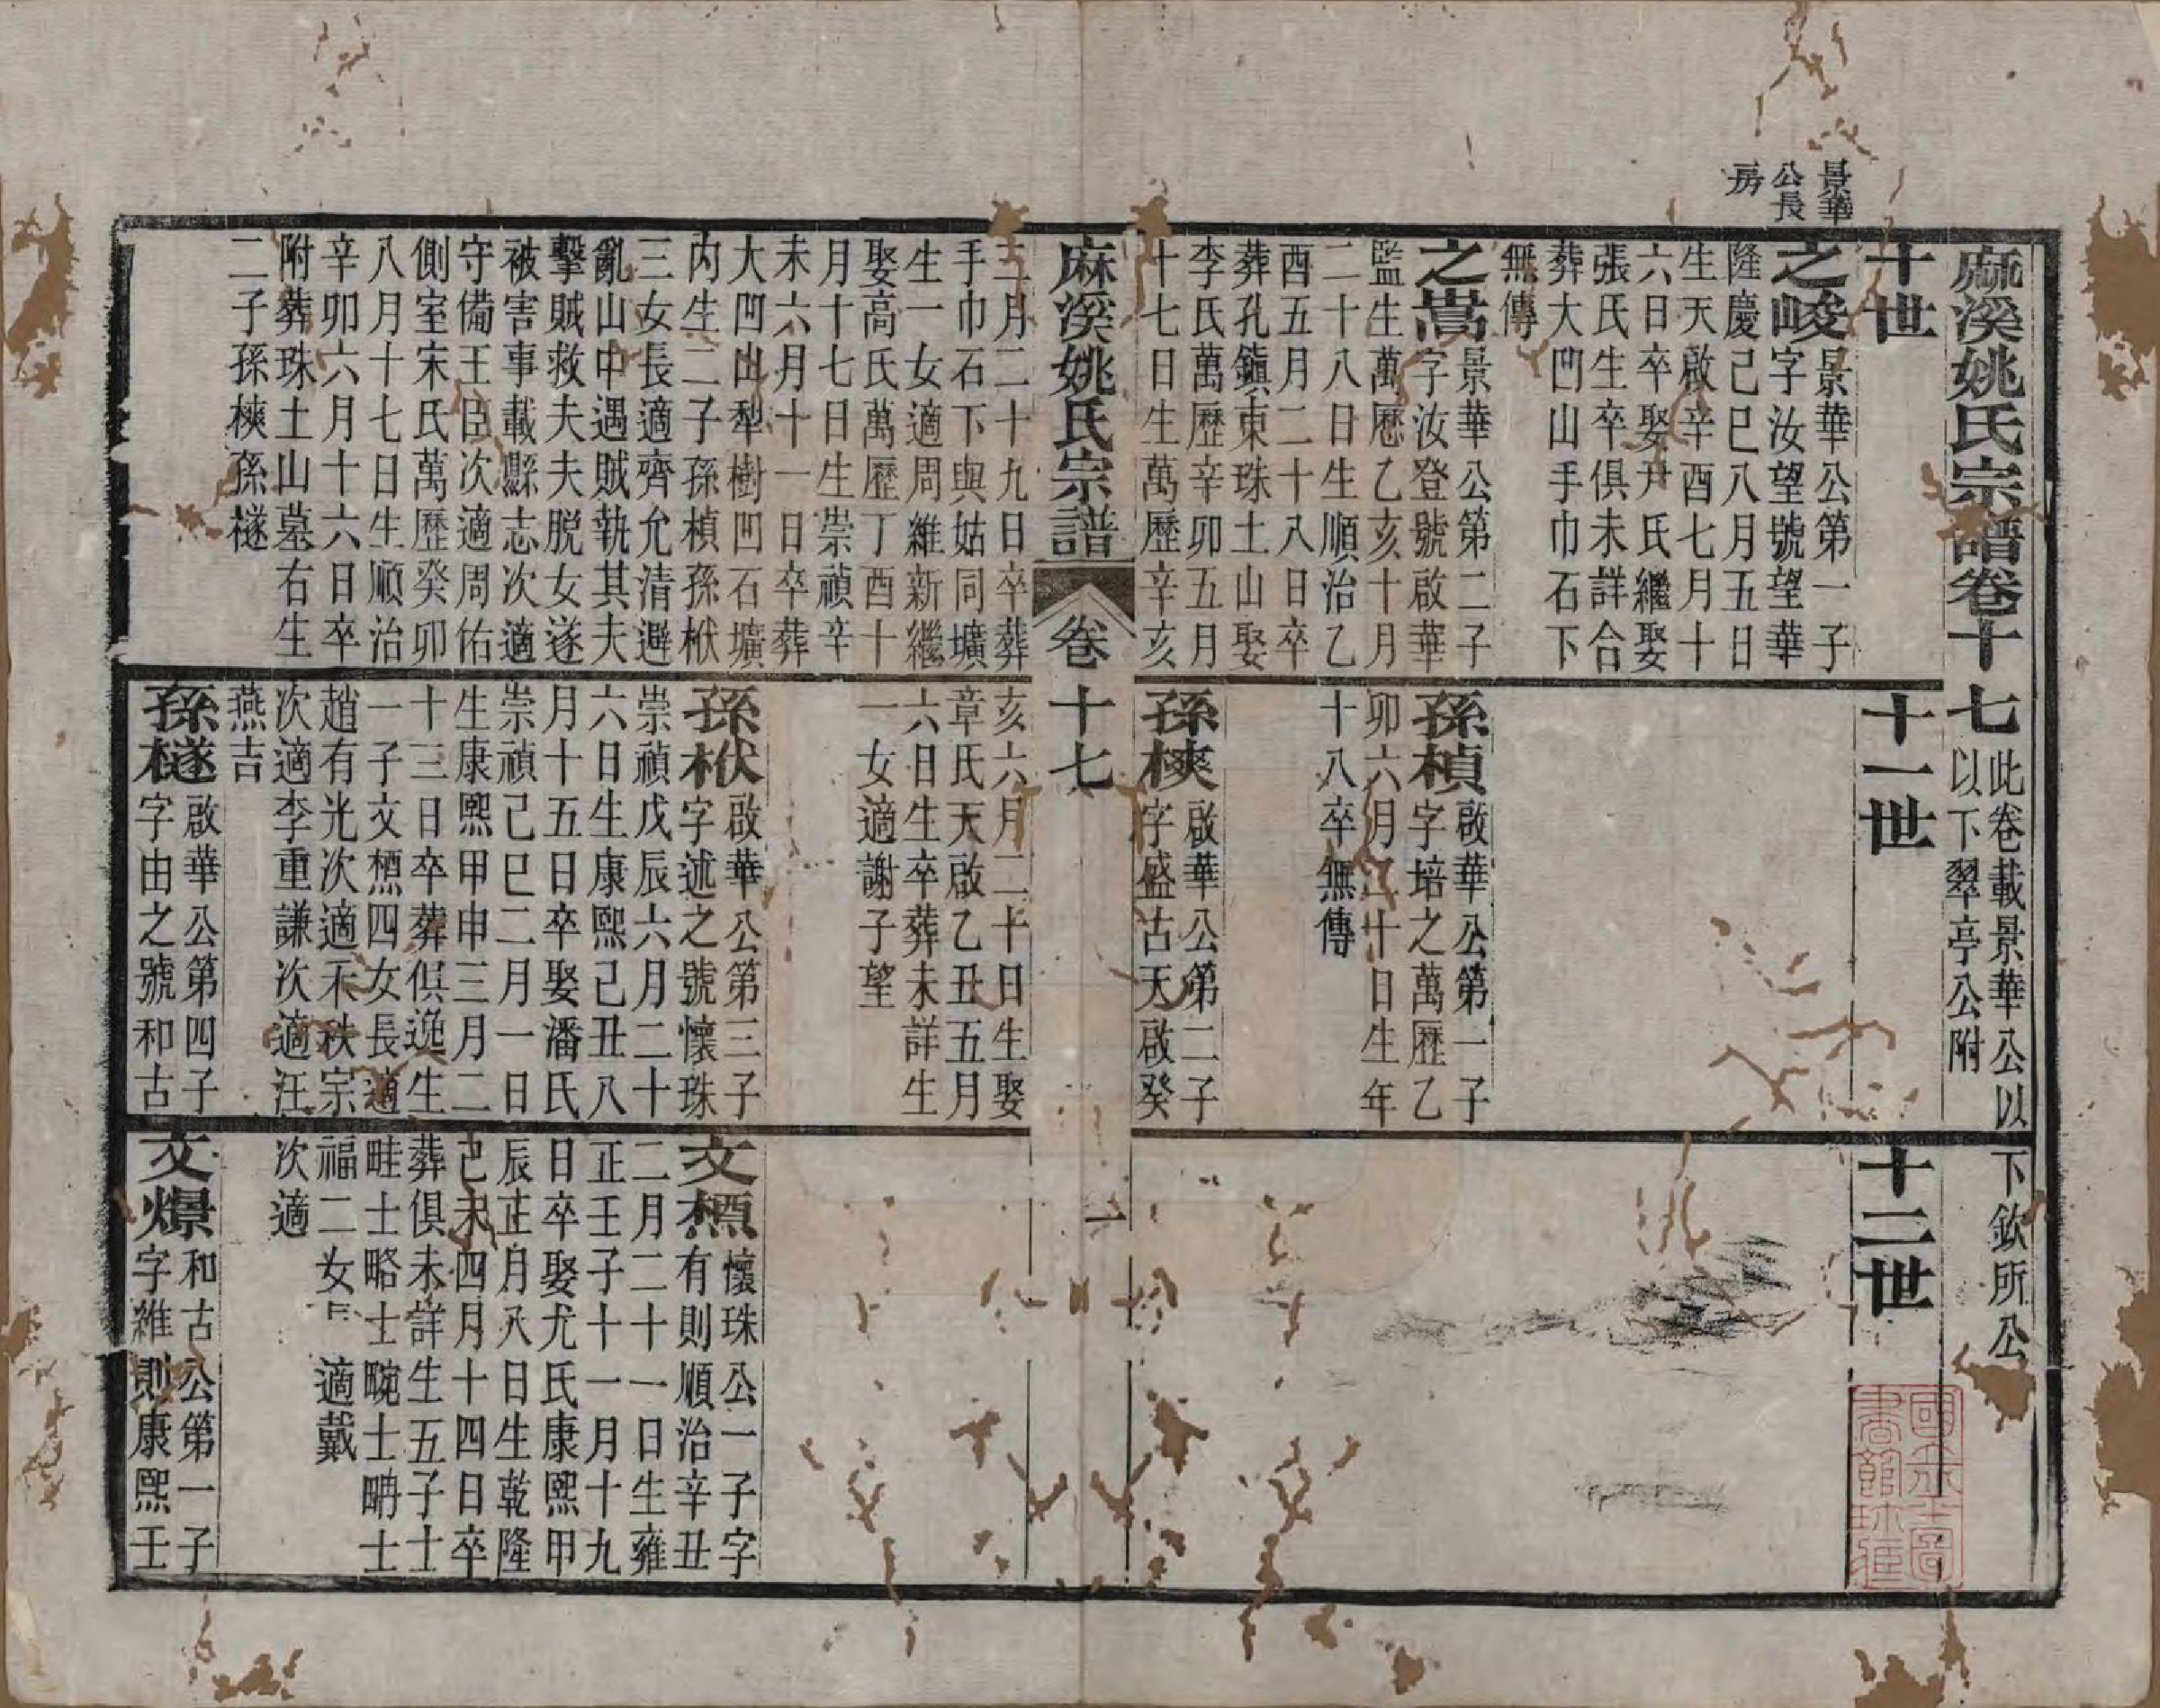 景華
公長
房
麻溪姚氏宗譜卷十七
此卷載景華公以下欽所公
以下翠亭公附
十世
之峻
景華公第一子
字汝望號望華
隆慶己巳八月五日
生天啟辛酉七月十
六日卒娶尹氏繼娶
張氏生卒俱未詳合
葬大凹山手巾石下
無傳
之嵩
景華公第二子
字汝登號啟華
監生萬曆乙亥十月
二十八日生順治乙
酉五月二十八日卒
葬孔鎮東珠土山娶
李氏萬歷辛卯五月
十七日生萬歷辛亥
三月二十九日卒葬
手巾石下與姑同壙
生一女適周維新繼
娶高氏萬歷丁酉十
月十七日生崇禎辛
未六月十一日卒葬
大凹山犁樹凹石壙
內生二子孫楨孫栿
三女長適齊允清避
亂山中遇賊執其夫
擊賊救夫夫脫女遂
被害事載縣志次適
守備王臣次適周佑
側室宋氏萬歷癸卯
八月十七日生順治
辛卯六月十六日卒
附葬珠土山墓右生
二子孫樉孫檖
十一世
孫楨
啟華公第一子
字培之萬歷乙
卯六月二十日生年
十八卒無傳
孫樉
啟華公第二子
字盛古天啟癸
亥六月二十日生娶
章氏天啟乙丑五月
六日生卒葬未詳生
一女適謝子望
孫栿
啟華公第三子
字述之號懷珠
崇禎戊辰六月二十
六日生康熙己丑八
月十五日卒娶潘氏
崇禎己巳二月一日
生康熙甲申三月二
十三日卒葬俱逸生
一子文槱四女長適
趙有光次適禾秩宗
次適李重謙次適汪
燕吉
孫檖
啟華公第四子
字由之號和古
十二世
文槱
懷珠公一子字
有則順治辛丑
二月二十一日生雍
正壬子十一月十九
日卒娶尤氏康熙甲
辰正月八日生乾隆
己未四月十四日卒
葬俱未詳生五子士
畦士略士畹士畊士
福二女長適戴
次適
文㷸
和古公第一子
字維則康熙壬
麻溪姚氏宗譜
卷十七
一